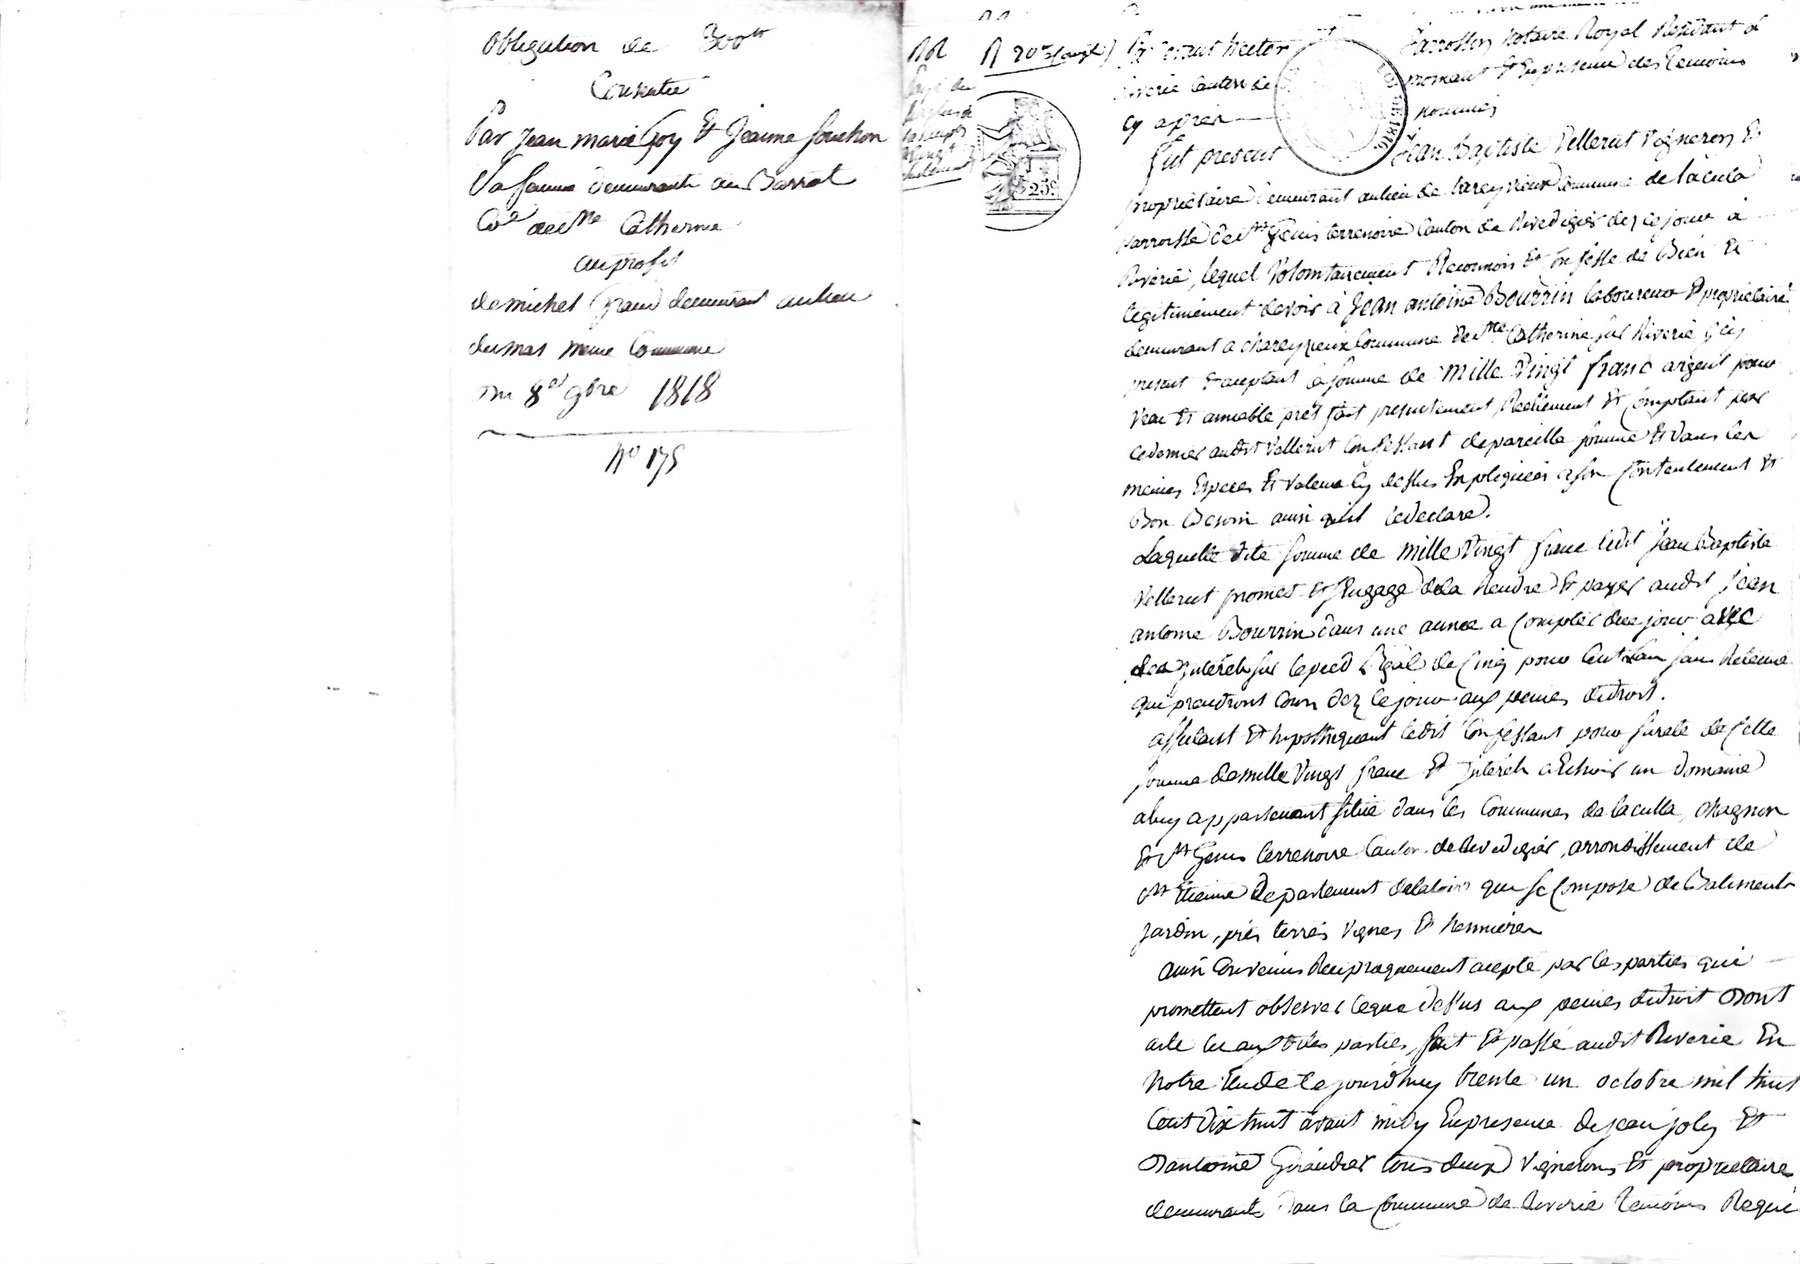 Obligation de 300tt
Consentie
Par Jean marie Goy Et Jeanne Souchon
Sa femme demeurants au Barrat
Cne de Ste Catherine
au profit
de michel Grand demeurant au lieu
du mas meme Commune
Du 8e 9bre 1818
No 175
Par devant
notaire Royal Residant à
Riverie Canton de mornant Et En presence des temoins
cy après nommés
fut present Jean Baptiste Vellerut Vigneron Et
propriétaire demeurant au lieu de Commune de lacula
parroisse de St Genis terrenoire Canton de Rivedegier dez ce jour à
Riverie, lequel Volontairement Reconnois Et Confesse de Bien Et
legitimement devoir à Jean antoine Bourrin laboureur Et propriétaire
demurant a chareyzieux Commune de Ste Catherine sur Riverie Icy
present Et aceptant la somme de mille Vingt franc argent pour
Vrai Et amiable prêt fait presentement, Reellement Et Comptant par
ce dernier audit Vellerut Confessant de pareille somme Et dans les
memes Especes Et Valeurs Cy dessus Expliquées a son Contentement Et
Bon Besoin ainsi qu'il le declare.
Laquelle dite somme de mille Vingt franc ledit Jean Baptiste
Vellerut promet Et s'Engage de la Rendre Et payer audit jean
antoine Bourrin dans une année a Compter de ce jour avec
les Interêts sur le pied légal de Cinq pour Cent L'an sans Retenue
qui prendront Cour dez Ce jour aux peines de droit.
affectant Et hipothequant ledit Confessant pour sureté de Cette
somme de mille Vingt franc Et Interêts a Echoir un domaine
a luy appartenant situé dans les Communes de laculla, Chagnon
Et St Genis terrenoire Canton de Rivedegier, arrondissement de
St Etienne Departement de la loire que se Compose de Batiments
Jardin, prés terres Vignes Et
ainsi Convenu Reciproquement acepté par les parties qui
promettent observer le que dessus aux peines de droit Dont
acte lu aux dites parties, fait Et passé audit Riverie En
Notre Etude le jourd'huy trente un octobre mil huit
Cent Dix huit avant midy En presence de jean joly Et
D'antoine Giraudier tous deux Vignerons Et propriétaire
demeurants Dans la Commune de Riverie temoins Requi
25c